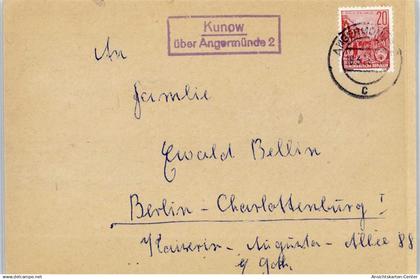 Kunow
über Angermünde 2
20
ANGERMÜNDE
c
An
Familie
Ewald Bellin
Berlin - Charlottenburg I
Kaiserin - Augusta - Allee 88
b/ Goth.
Ansichtskarten-Center